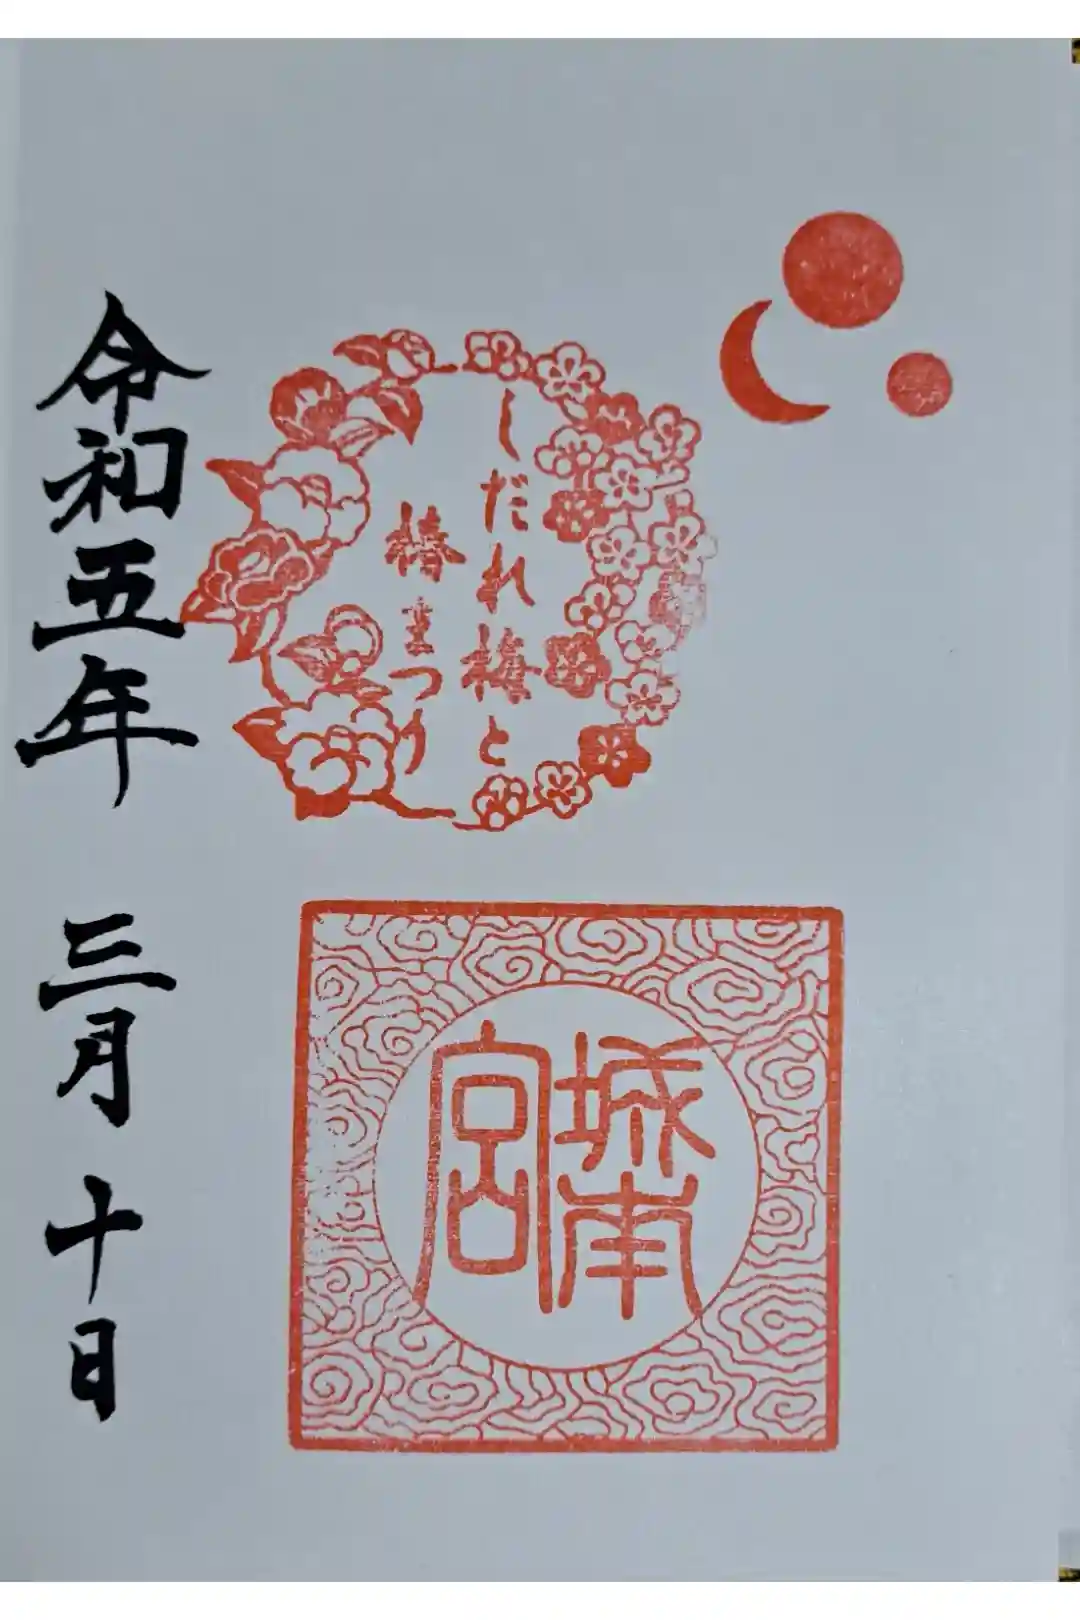 しだれ梅と
椿まつり
城南
宮
令和五年 三月十日